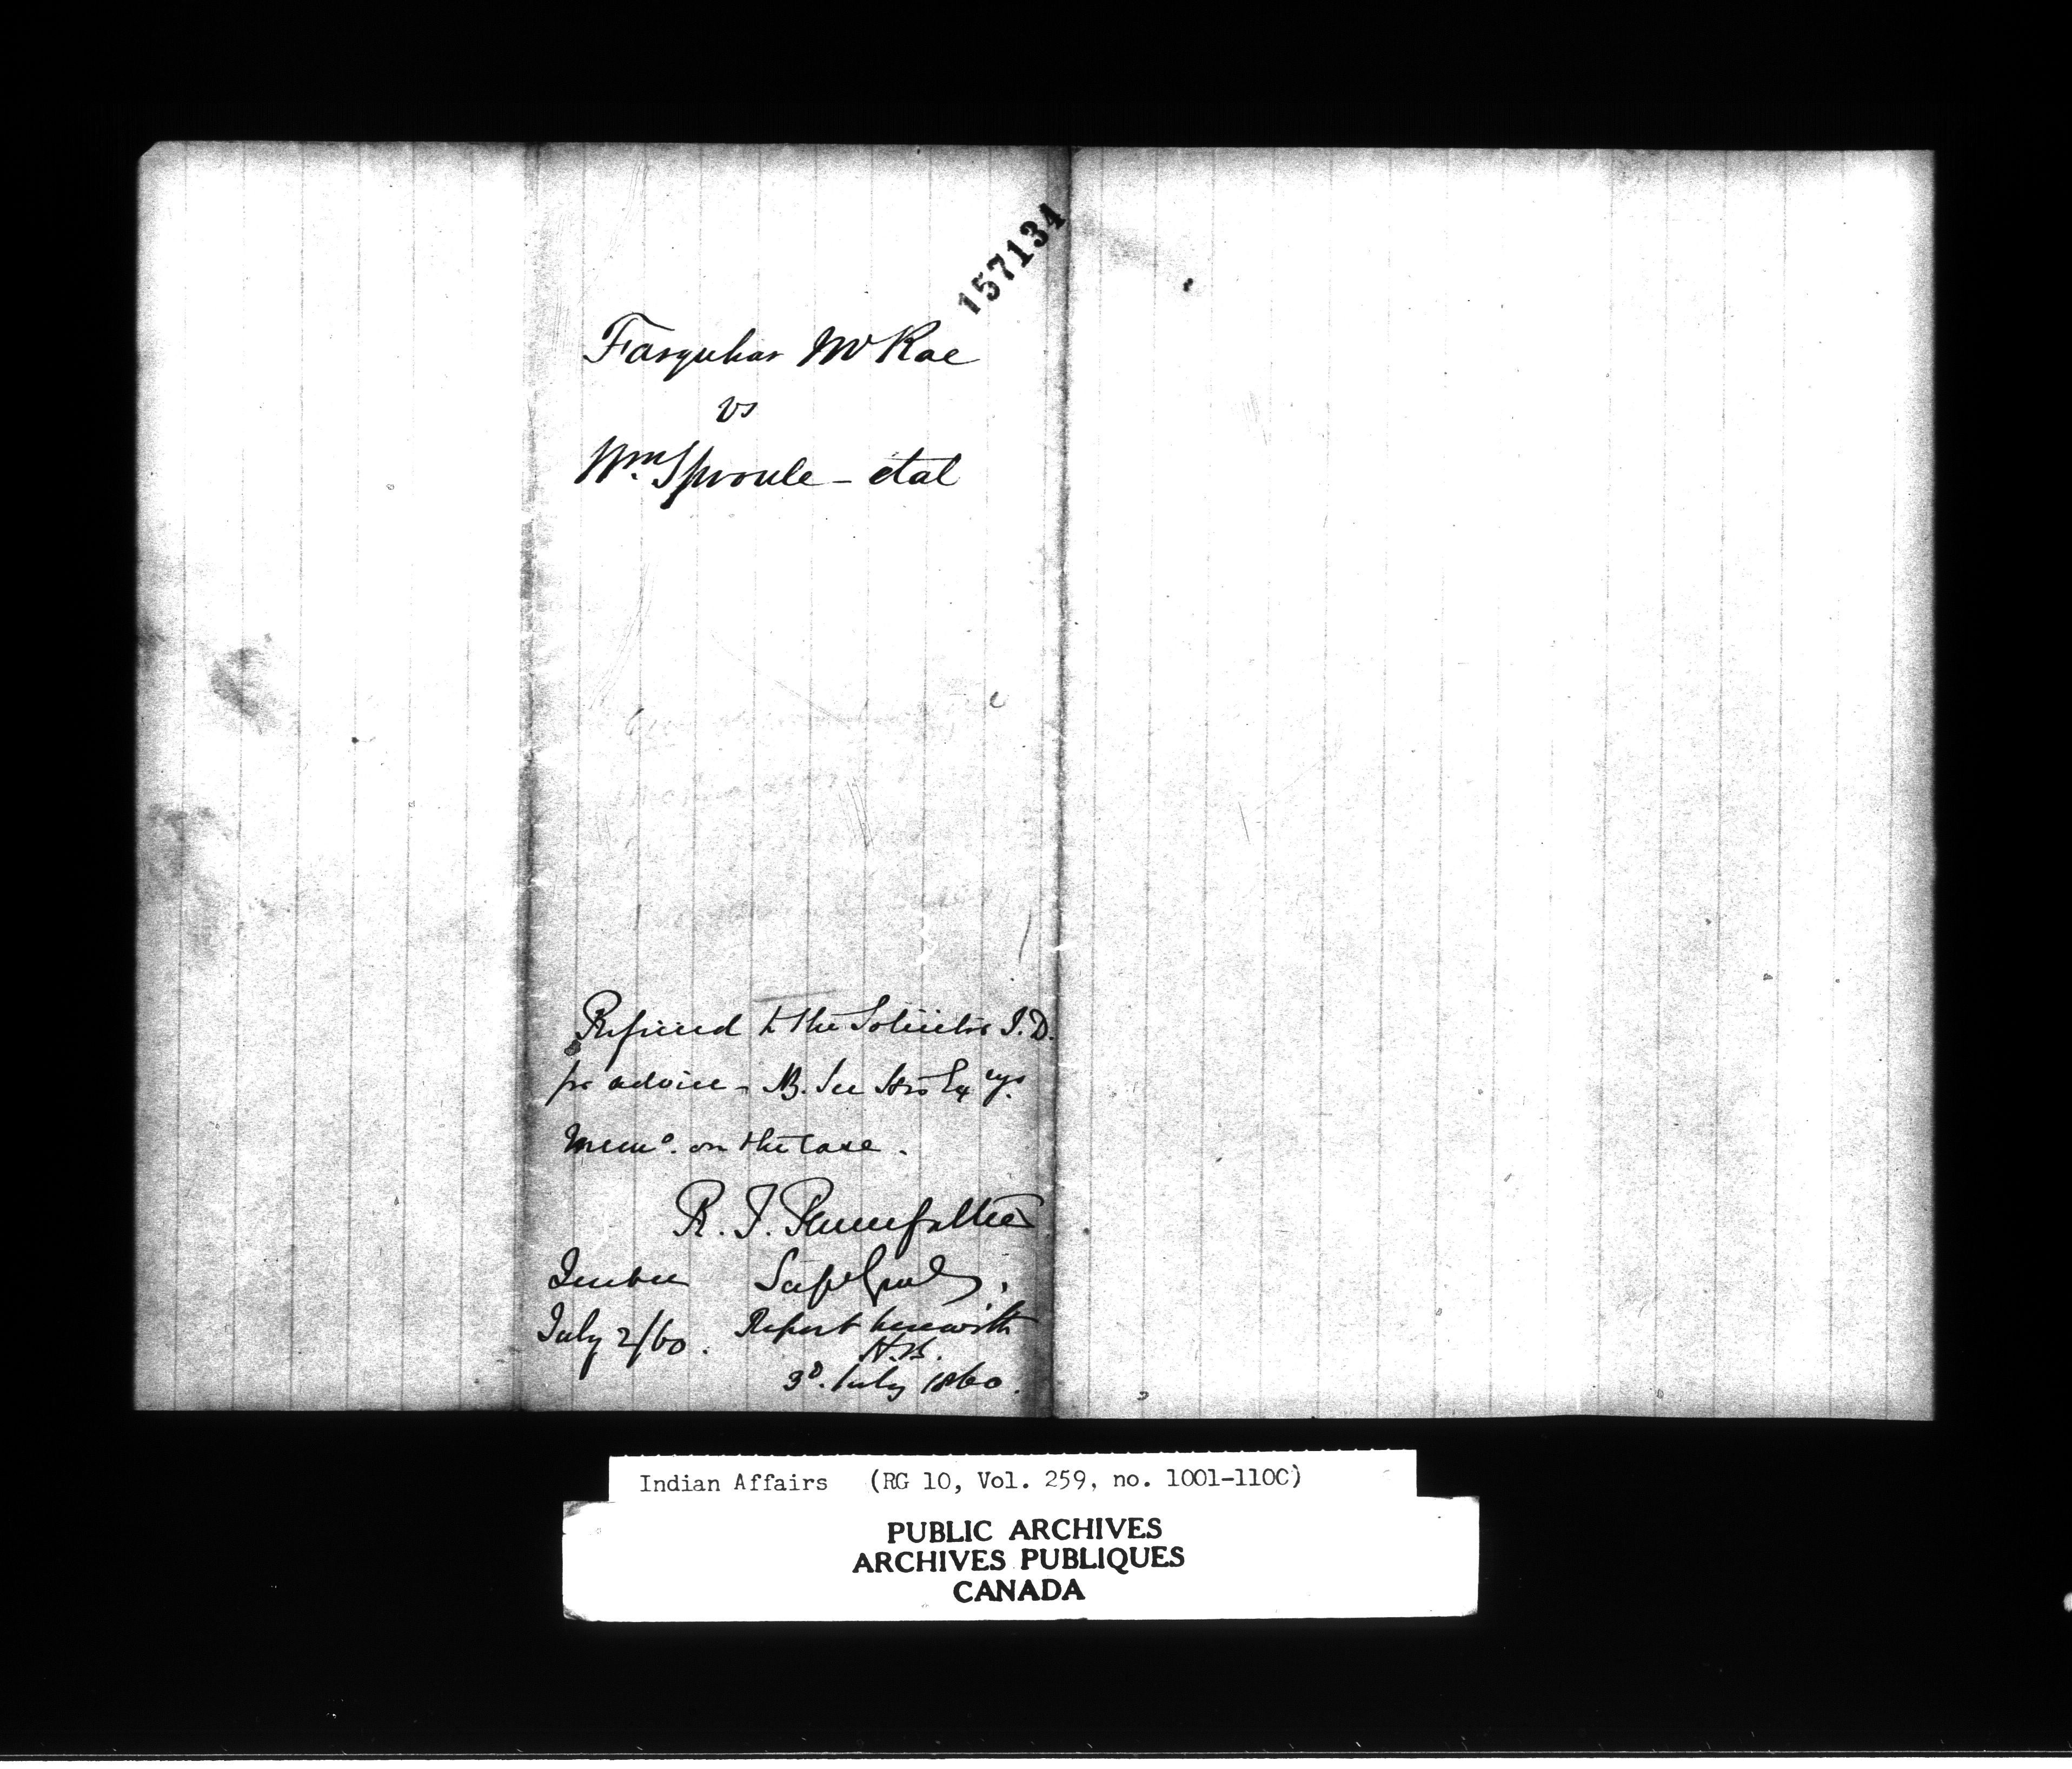 157134
Farquhar McRae
vs
Wm. Sproule - etal
Referred to the Solicitor I.D.
for advice - NB. See His Excys.
Memo. on the case.
R. T. Pennefather
Quebec SupGenl,
July 2/60. Report herewith
H.B.
3d. July 1860.
Indian Affairs (RG 10, Vol. 259, no. 1001-1100)
PUBLIC ARCHIVES
ARCHIVES PUBLIQUES
CANADA